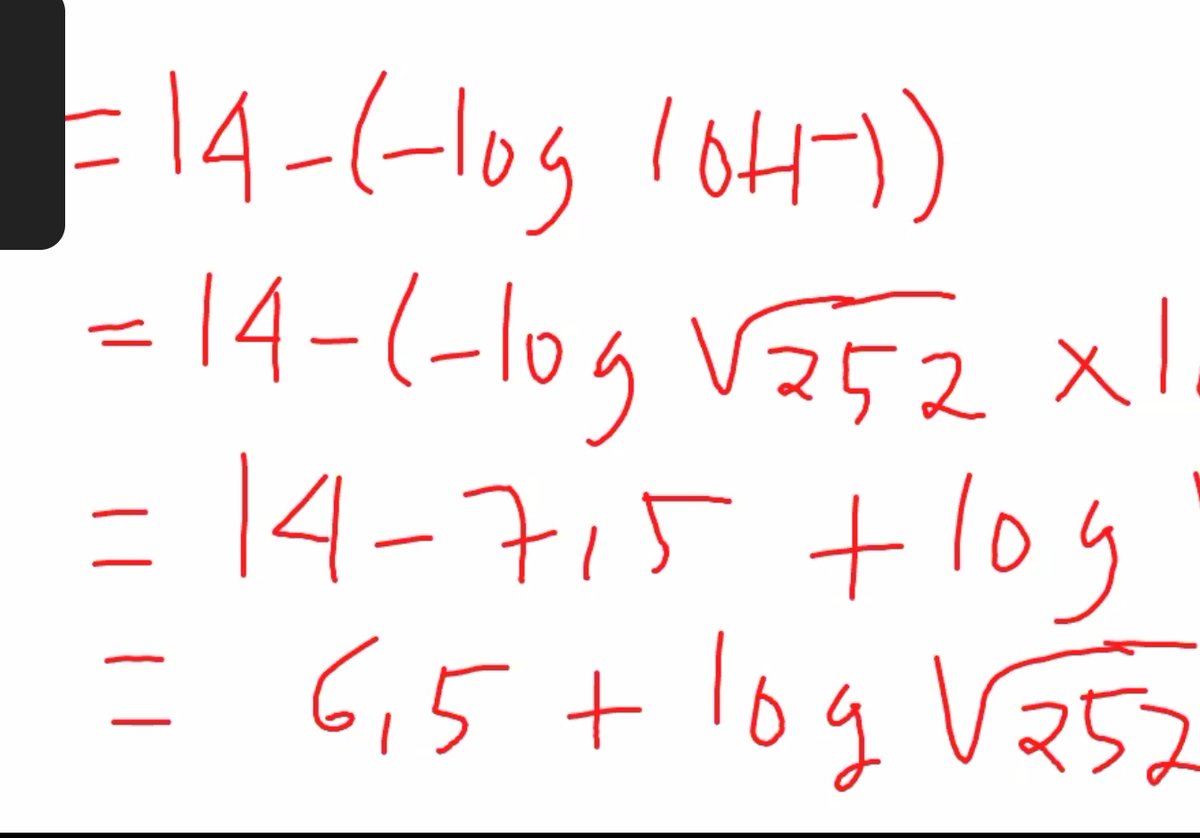 = 14 - (-log (OH-))
= 14 - (-log √252 × 1
= 14 - 7,5 + log √
= 6,5 + log √252